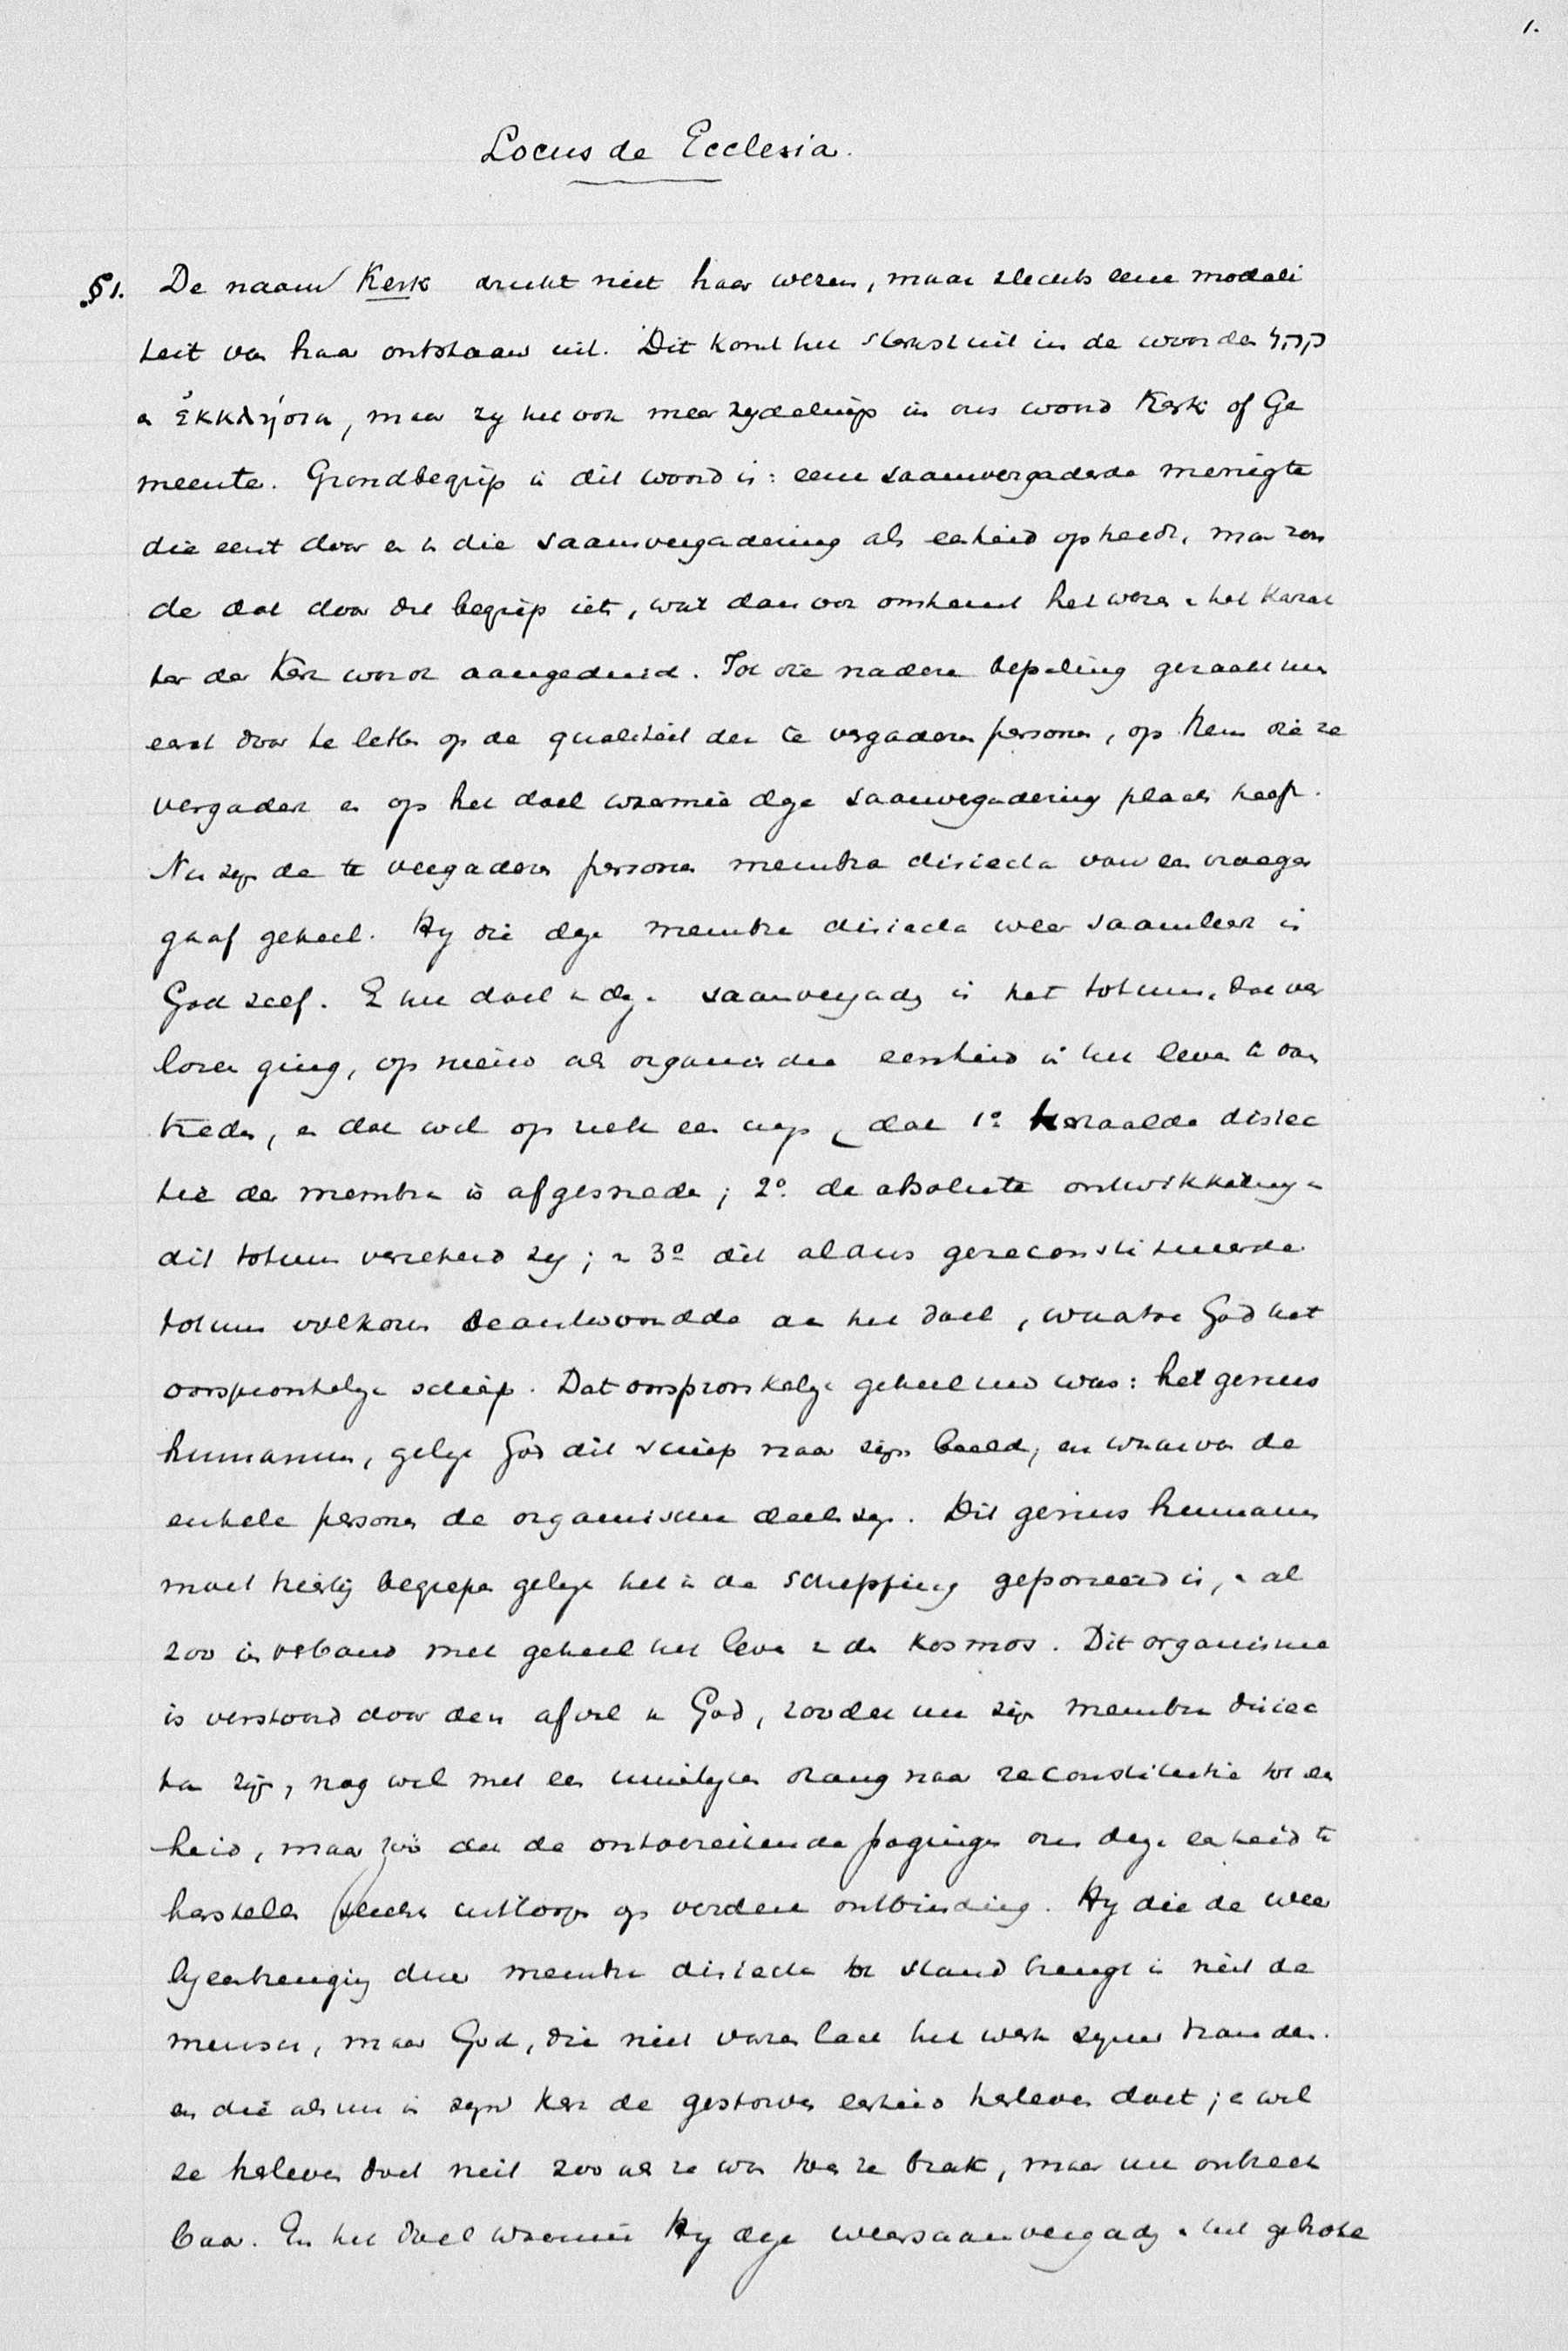 1.
Locus de Ecclesia.
§1. De naam Kerk drukt niet haar wezen, maar slechts eene modali
teit van haar ontstaan uit. Dit komt het sterkst uit in de woorden קהל
en ἐκκλησία, maar zij het ook meer zijdelings in ons woord Kerk of Ge
meente. Grondbegrip in dit woord is: eene saamvergaderde menigte
die eerst door en in die saamvergadering als eenheid optreedt, maar zon
der dat door dit begrip iets, wat dan ook omtrent het wezen en het karak
ter der Kerk wordt aangeduid. Tot die nadere bepaling geraakt men
eerst door te letten op de qualiteit der te vergaderen personen, op Hem die ze
vergadert en op het doel waarmeê deze saamvergadering plaats heeft.
Nu zijn de te vergaderen personen membra disiecta van een vroeger
gaaf geheel. Hij die deze membra disiecta weer saamleest is
God zelf. En het doel van deze saamvergadg is het totum, dat ver
loren ging, op nieuw als organische eenheid in het leven te doen
treden, en dat wel op zulk een wijs, dat 1o. herhaalde disiec
tie der membra is afgesneden; 2o. de absolute ontwikkeling van
dit totum verzekerd zij; en 3o dit aldus gereconstitueerde
totum volkomen beantwoordde aan het doel, waartoe God het
oorspronkelijk schiep. Dat oorspronkelijk geheel nu was: het genus
humanum, gelijk God dit schiep naar zijn beeld, en waarvan de
enkele personen de organische deelen zijn. Dit genus humanum
moet hierbij begrepen gelijk het in de Schepping geponeerd is, en al
zoo in verband met geheel het leven van den Kosmos. Dit organisme
is verstoord door den afval van God, zoodat nu zijn membra disiec
ta zijn, nog wel met een innerlijken drang naar reconstitutie tot een
heid, maar zóó dat de ontoereikende pogingen om deze eenheid te
herstellen slechts uitloopen op verdere ontbinding. Hij die de weer
bijeenbrenging dezer membra disiecta tot stand brengt is niet de
mensch, maar God, die niet varen laat het werk zijner handen.
en die als nu in zijn Kerk de gestorven eenheid herleven doet; en wel
ze herleven doet niet zoo als ze was toen ze brak, maar nu onbreek
baar. En het doel waarmeê Hij deze weersaamvergadg van het gebroke